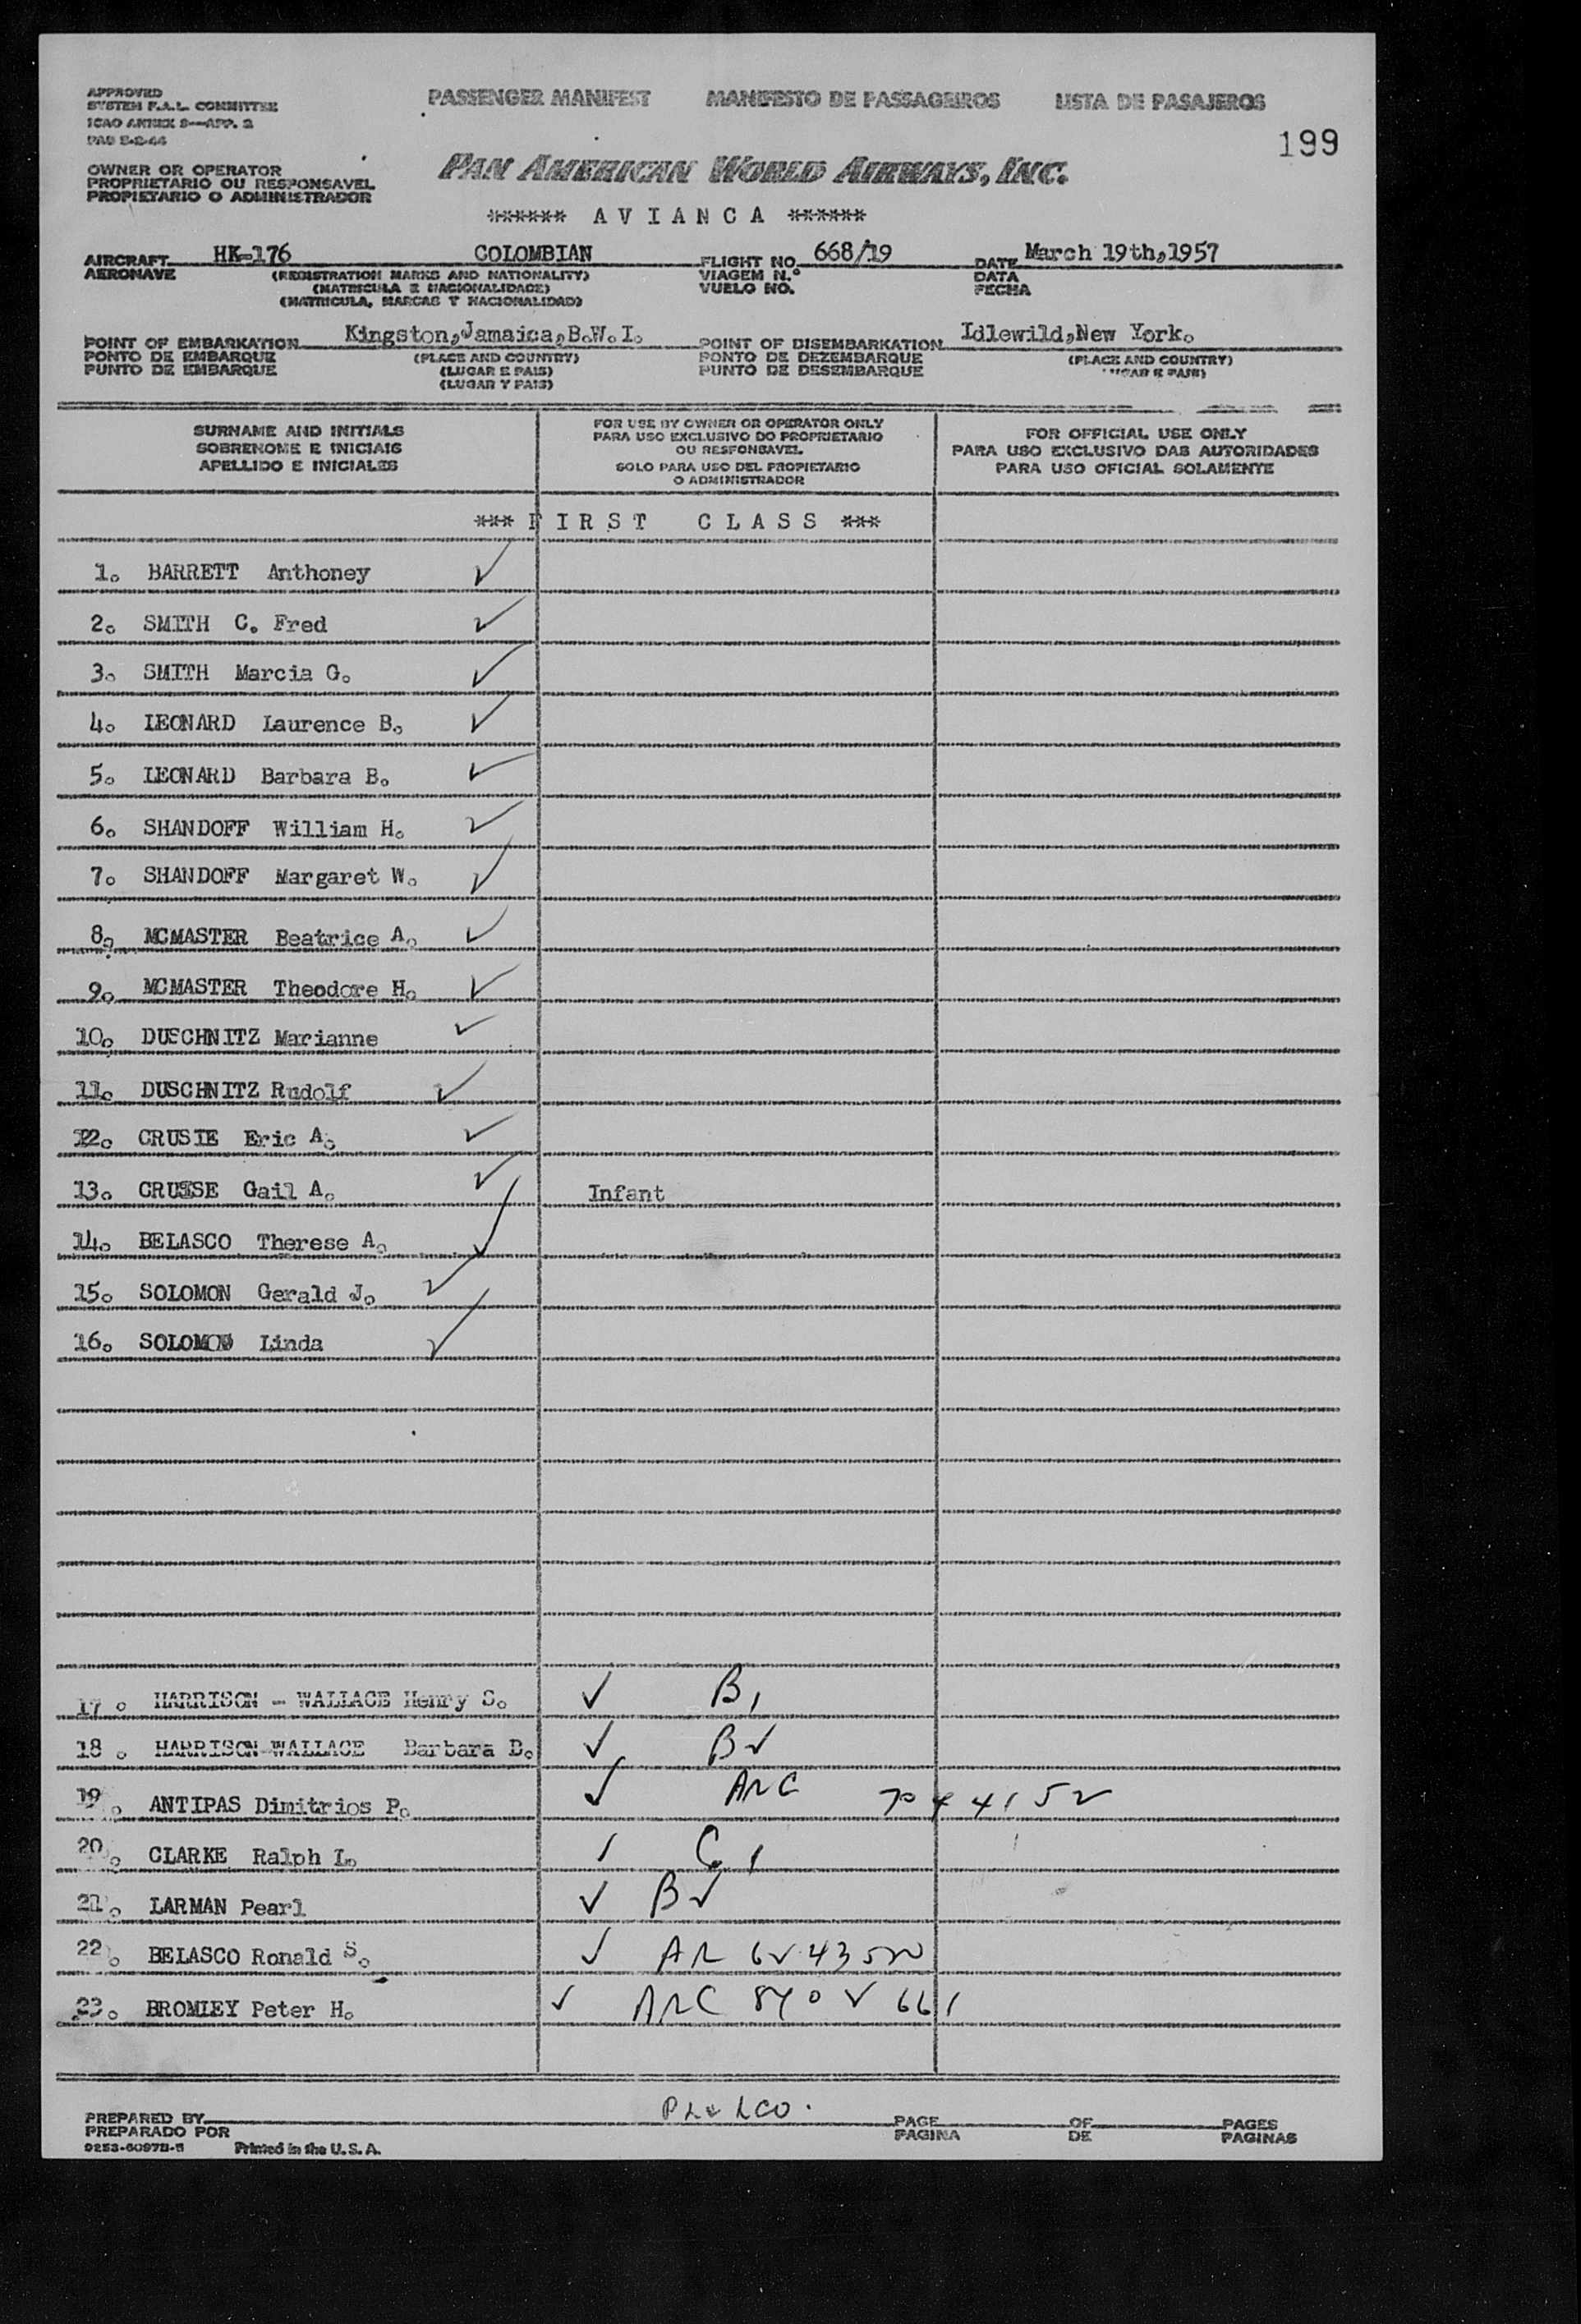 APPROVED
SYSTEM F.A.L. COMMITTEE
ICAO ANNEX 9—APP. 2
PASSENGER MANIFEST MANIFESTO DE PASSAGEIROS LISTA DE PASAJEROS
199
OWNER OR OPERATOR
PROPRIETARIO OU RESPONSAVEL
PROPIETARIO O ADMINISTRADOR
PAN AMERICAN WORLD AIRWAYS, INC.
****** A V I A N C A ******
AIRCRAFT HK-176 COLOMBIAN FLIGHT NO. 668/19 DATE March 19th,1957
AERONAVE (REGISTRATION MARKS AND NATIONALITY) VIAGEM N.º DATA
(MATRICULA E NACIONALIDADE) VUELO NO. FECHA
(MATRICULA, MARCAS Y NACIONALIDAD)
POINT OF EMBARKATION Kingston,Jamaica,B.W.I. POINT OF DISEMBARKATION Idlewild,New York.
PONTO DE EMBARQUE (PLACE AND COUNTRY) PONTO DE DEZEMBARQUE (PLACE AND COUNTRY)
PUNTO DE EMBARQUE (LUGAR E PAIS) PUNTO DE DESEMBARQUE (LUGAR E PAIS)
(LUGAR Y PAIS)
SURNAME AND INITIALS
SOBRENOME E INICIAIS
APELLIDO E INICIALES
FOR USE BY OWNER OR OPERATOR ONLY
PARA USO EXCLUSIVO DO PROPRIETARIO
OU RESPONSAVEL
SOLO PARA USO DEL PROPIETARIO
O ADMINISTRADOR
FOR OFFICIAL USE ONLY
PARA USO EXCLUSIVO DAS AUTORIDADES
PARA USO OFICIAL SOLAMENTE
*** F I R S T C L A S S ***
1. BARRETT Anthoney ✓
2. SMITH C. Fred ✓
3. SMITH Marcia G. ✓
4. LEONARD Laurence B. ✓
5. LEONARD Barbara B. ✓
6. SHANDOFF William H. ✓
7. SHANDOFF Margaret W. ✓
8. MCMASTER Beatrice A. ✓
9. MCMASTER Theodore H. ✓
10. DUSCHNITZ Marianne ✓
11. DUSCHNITZ Rudolf ✓
12. CRUSIE Eric A. ✓
13. CRUISE Gail A. ✓ Infant
14. BELASCO Therese A. ✓
15. SOLOMON Gerald J. ✓
16. SOLOMON Linda ✓
17. HARRISON - WALLACE Henry S. ✓ B1
18. HARRISON-WALLACE Barbara D. ✓ B2
19. ANTIPAS Dimitrios P. ✓ ARC
20. CLARKE Ralph L. C1
21. LARMAN Pearl ✓ B2
22. BELASCO Ronald S. ✓ AR
23. BROMLEY Peter H. ✓ ARC
PREPARED BY PAGE OF PAGES
PREPARADO POR PAGINA DE PAGINAS
Printed in the U.S.A.